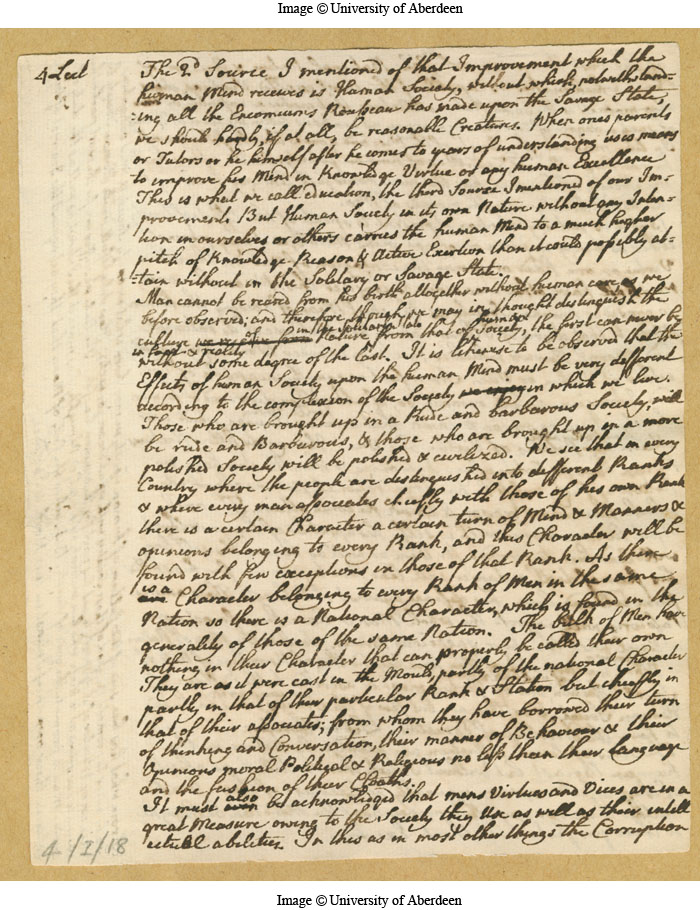 Image © University of Aberdeen
4 Lect
The 2d Source I mentioned of that Improvement which the
human Mind receives is Human Society, without which, notwithstand-
-ing all the Encomiums Rousseau has made upon the Savage State,
we should hardly, if at all, be reasonable Creatures. When ones parents
or Tutors or he himself after he comes to years of understanding uses means
to improve his Mind in Knowledge Virtue or any human Excellence
This is what we call education, the third Source I mentioned of our Im-
provement. But Human Society in its own Nature without any Inten-
tion in ourselves or others carries the human Mind to a much higher
pitch of Knowledge Reason & Active Exertion than it could possibly at-
-tain without in the Solitary or Savage State.
Man cannot be reared from his birth altogether without human care, as we
before observed; and therefore though we may in thought distinguish the
culture we receive from Nature in the solitary state from that of human Society, the first can never be
in fact & reality without some degree of the last. It is likewise to be observed that the
Effects of human Society upon the human Mind must be very different
according to the complexion of the Society we enjoy in which we live.
Those who are brought up in a Rude and barbarous Society, will
be rude and Barbarous, & those who are brought up in a more
polished Society will be polished & civilized. We see that in every
Country where the people are distinguished into different Ranks
& where every man associates chiefly with those of his own Rank
there is a certain Character a certain turn of Mind & Manners &
opinions belonging to every Rank, and this Character will be
found with few exceptions in those of that Rank. As there
is a Character belonging to every Rank of Men in the same
Nation so there is a National Character, which is found in the
generality of those of the same Nation. The bulk of Men have
nothing in their Character that can properly be called their own
They are as it were cast in the Mould, partly of the national Character
partly in that of their particular Rank & Station but chiefly in
that of their associates; from whom they have borrowed their turn
of thinking and Conversation, their manner of Behaviour & their
Opinions moral Political & Religious no less than their Language
and the fashion of their Cloaths.
It must also be acknowledged that mens Virtues and Vices are in a
great Measure owing to the Society they Use as well as their intell
ectual abilities. In this as in most other things the Corruption
4/I/18
Image © University of Aberdeen